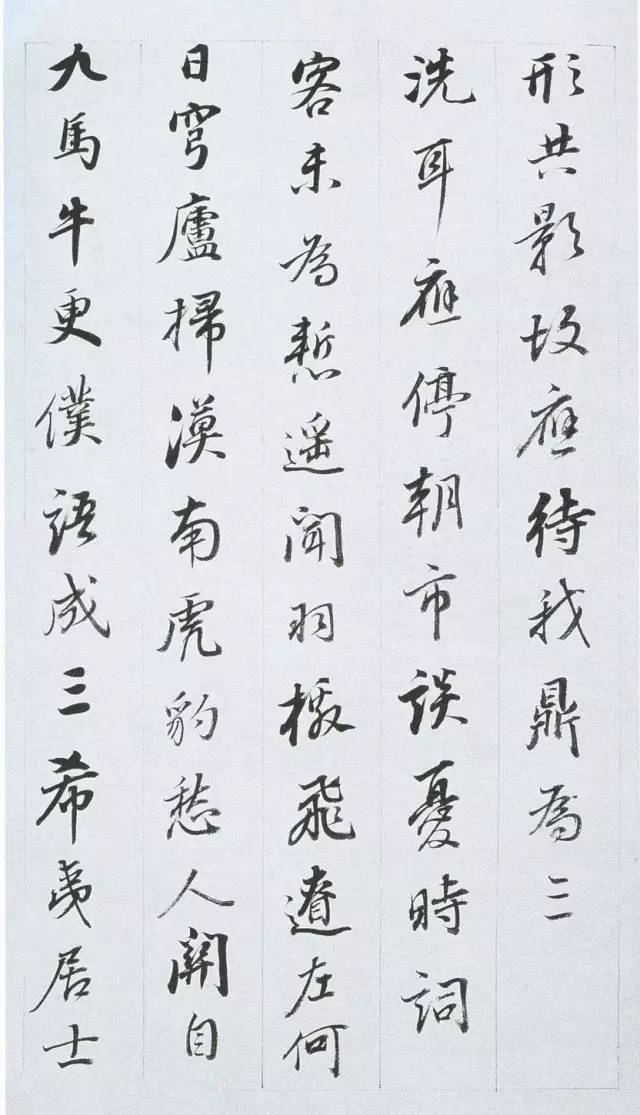 形共影故應待我鼎為三
洗耳應停朝市談憂時詞
客未為慙遥聞羽檄飛遼左何
日穹廬掃漠南虎豹愁人關自
九馬牛更僕語成三希夷居士